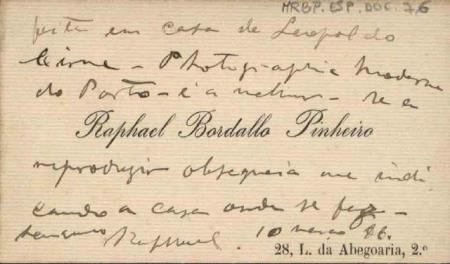 MRBP.ESP.DOC.76
feita em casa de Leopoldo
Cirne - Photographia Moderna
do Porto - é a melhor - se a
Raphael Bordallo Pinheiro
reproduzir obsequeia me indi
cando a casa onde se fez -
Raphael. 10 março 86.
28, L. da Abegoaria, 2.º